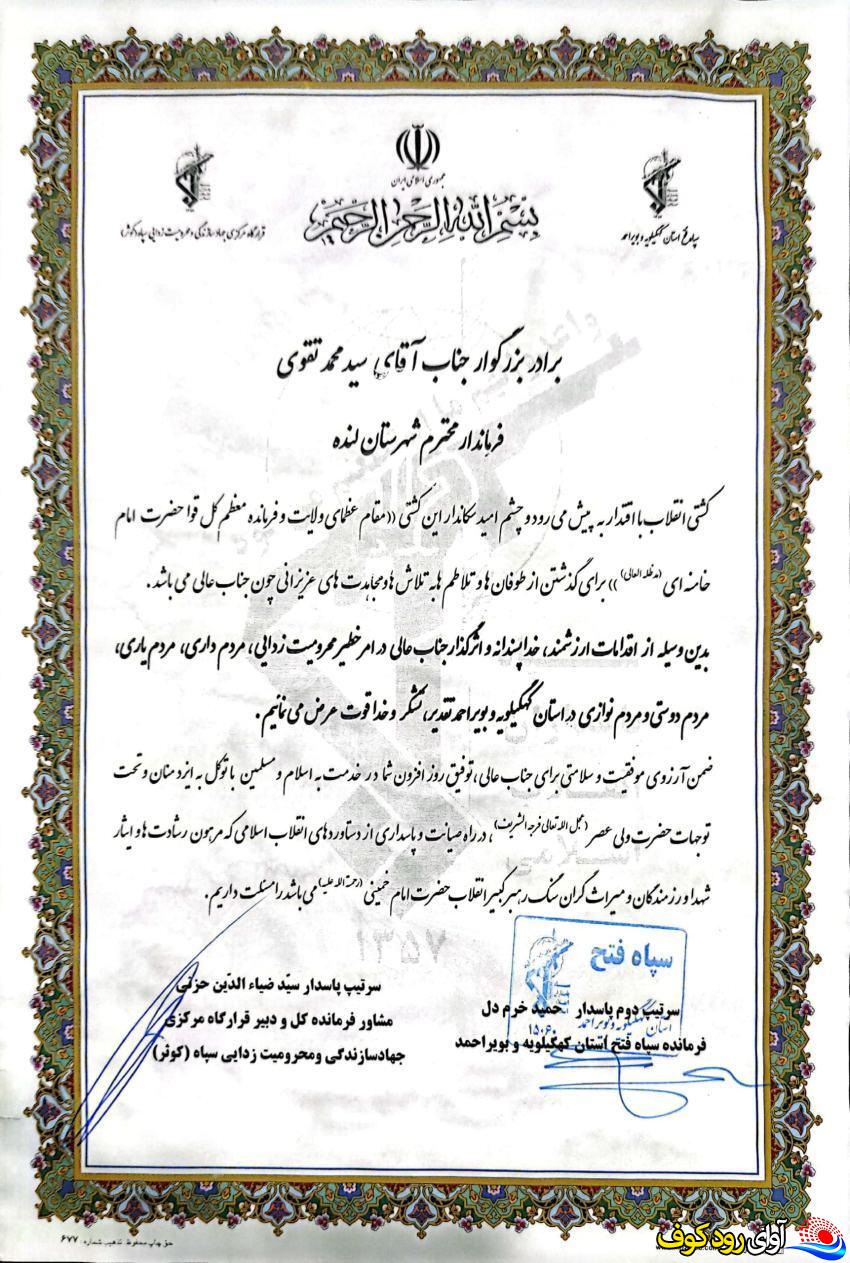 جمهوری اسلامی ایران
بسم الله الرحمن الرحیم
سپاه فتح استان کهگیلویه و بویراحمد
قرارگاه مرکزی جهادسازندگی و محرومیت زدایی سپاه (کوثر)
برادر بزرگوار جناب آقای سید محمد تقوی
فرماندار محترم شهرستان لنده
کشتی انقلاب با اقتدار به پیش می رود و چشم امید سکاندار این کشتی ((مقام عظمای ولایت و فرمانده معظم کل قوا حضرت امام
خامنه ای (مدظله العالی) )) برای گذشتن از طوفان ها و تلاطم ها به تلاش ها و مجاهدت های عزیزانی چون جناب عالی می باشد.
بدین وسیله از اقدامات ارزشمند، خداپسندانه و اثرگذار جناب عالی در امر خطیر محرومیت زدایی، مردم داری، مردم یاری،
مردم دوستی و مردم نوازی در استان کهگیلویه و بویراحمد تقدیر، تشکر و خدا قوت عرض می نمائیم.
ضمن آرزوی موفقیت و سلامتی برای جناب عالی، توفیق روز افزون شما در خدمت به اسلام و مسلمین با توکل به ایزد منان و تحت
توجهات حضرت ولی عصر (عجل الله تعالی فرجه الشریف)، در راه صیانت و پاسداری از دستاوردهای انقلاب اسلامی که مرهون رشادت ها و ایثار
شهدا و رزمندگان و میراث گران سنگ رهبر کبیر انقلاب حضرت امام خمینی (رحمة الله علیه) می باشد را مسئلت داریم.
۱۳۵۷
سپاه فتح
استان کهگیلویه و بویراحمد
۱۵۰۶۰
سرتیپ دوم پاسدار حمید خرم دل
فرمانده سپاه فتح استان کهگیلویه و بویراحمد
سرتیپ پاسدار سیّد ضیاء الدّین حزنی
مشاور فرمانده کل و دبیر قرارگاه مرکزی
جهادسازندگی ومحرومیت زدایی سپاه (کوثر)
حق چاپ محفوظ تذهیب شماره: ۶۷۷
آوای رود کوف